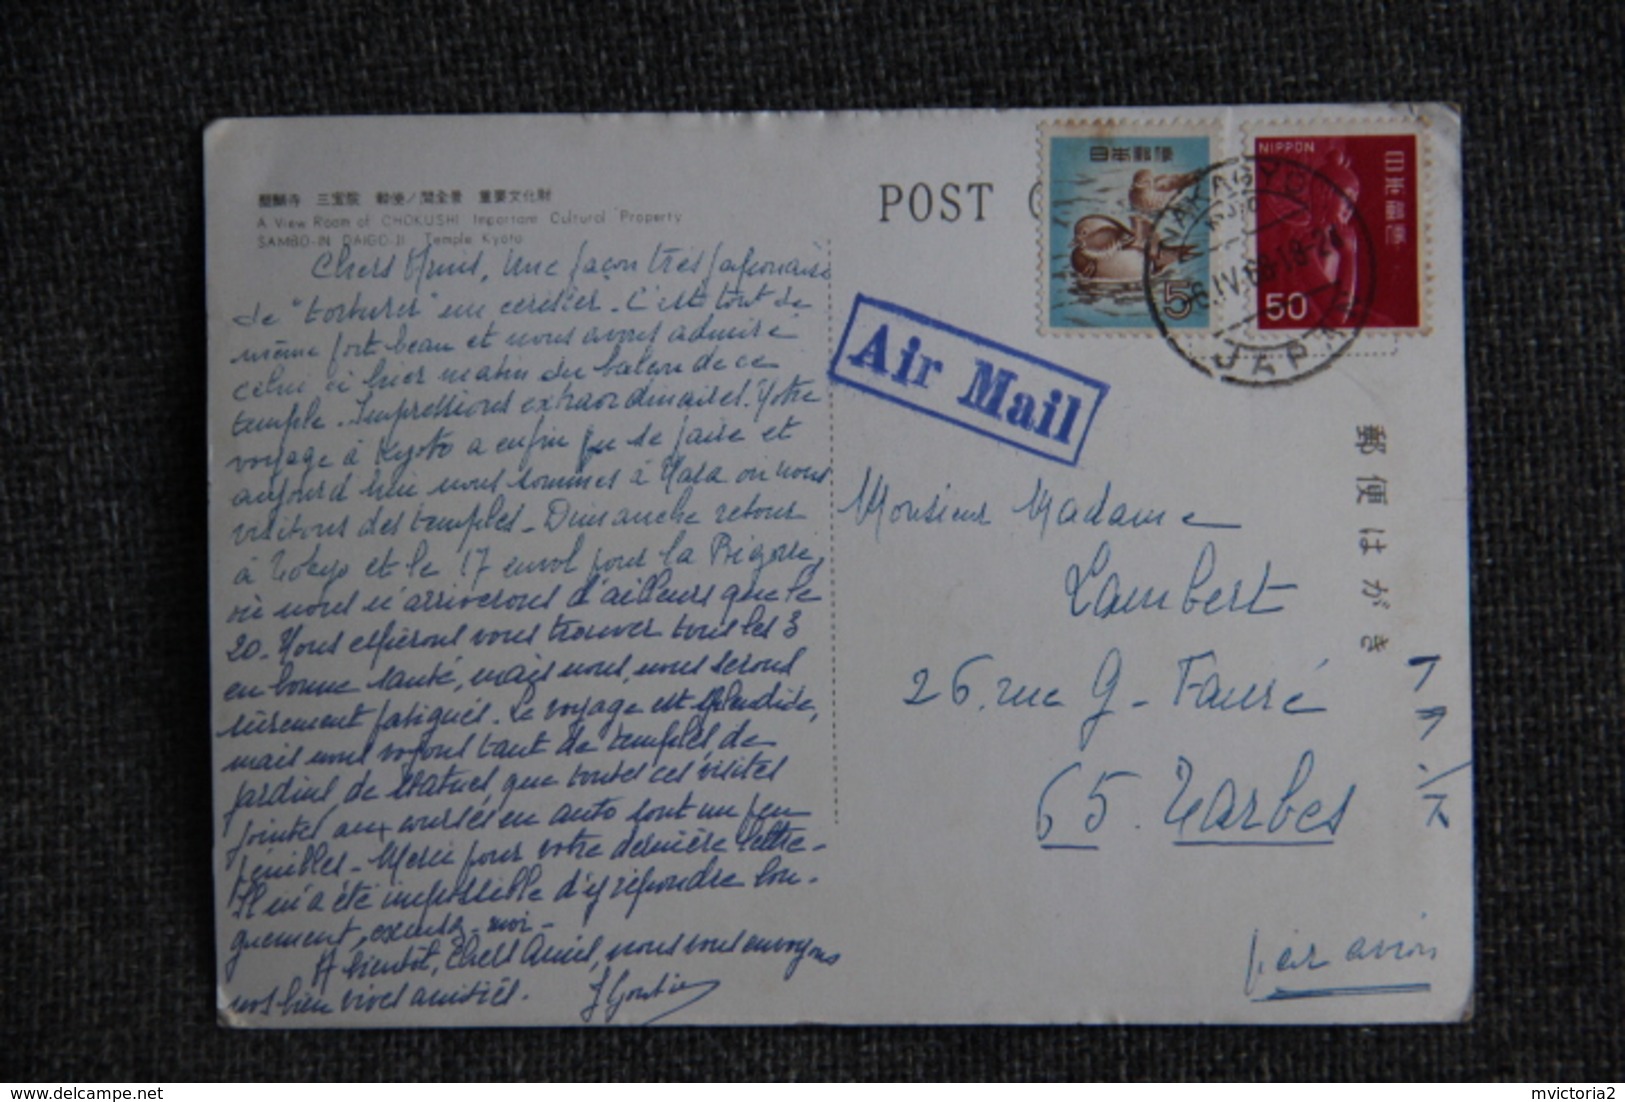 醍醐寺 三宝院 勅使ノ間全景 重要文化財
A View Room of CHOKUSHI Important Cultural Property
SAMBO-IN DAIGO-JI Temple Kyoto
POST C
日本郵便
5
NIPPON
日本郵便
50
JAPAN
Air Mail
郵便はがき
Chers Amis, Une façon très japonaise
de "torturer" un cerisier. C'est tout de
même fort beau et nous avons admiré
celui ci hier matin du balcon de ce
temple. Impressions extraordinaires. Votre
voyage à Kyoto a enfin pu se faire et
aujourd'hui nous sommes à Nara où nous
visitons des temples - Dimanche retour
à Tokyo et le 17 envol pour la Bigorre,
où nous n'arriverons d'ailleurs que le
20 - Nous espérons vous trouver tous les 3
en bonne santé, mais nous, nous serons
sûrement fatigués. Le voyage est splendide,
mais nous voyons tant de temples de
jardins, de statues, que toutes ces visites
jointes aux courses en auto sont un peu
pénibles - Merci pour votre dernière lettre -
Il m'a été impossible d'y répondre lon-
guement, excusez-moi -
A bientôt, Chers Amis, nous vous envoyons
nos bien vives amitiés.
Monsieur Madame
Lambert
26. rue G - Fauré
65. Tarbes
フランス
par avion
mvictoria2